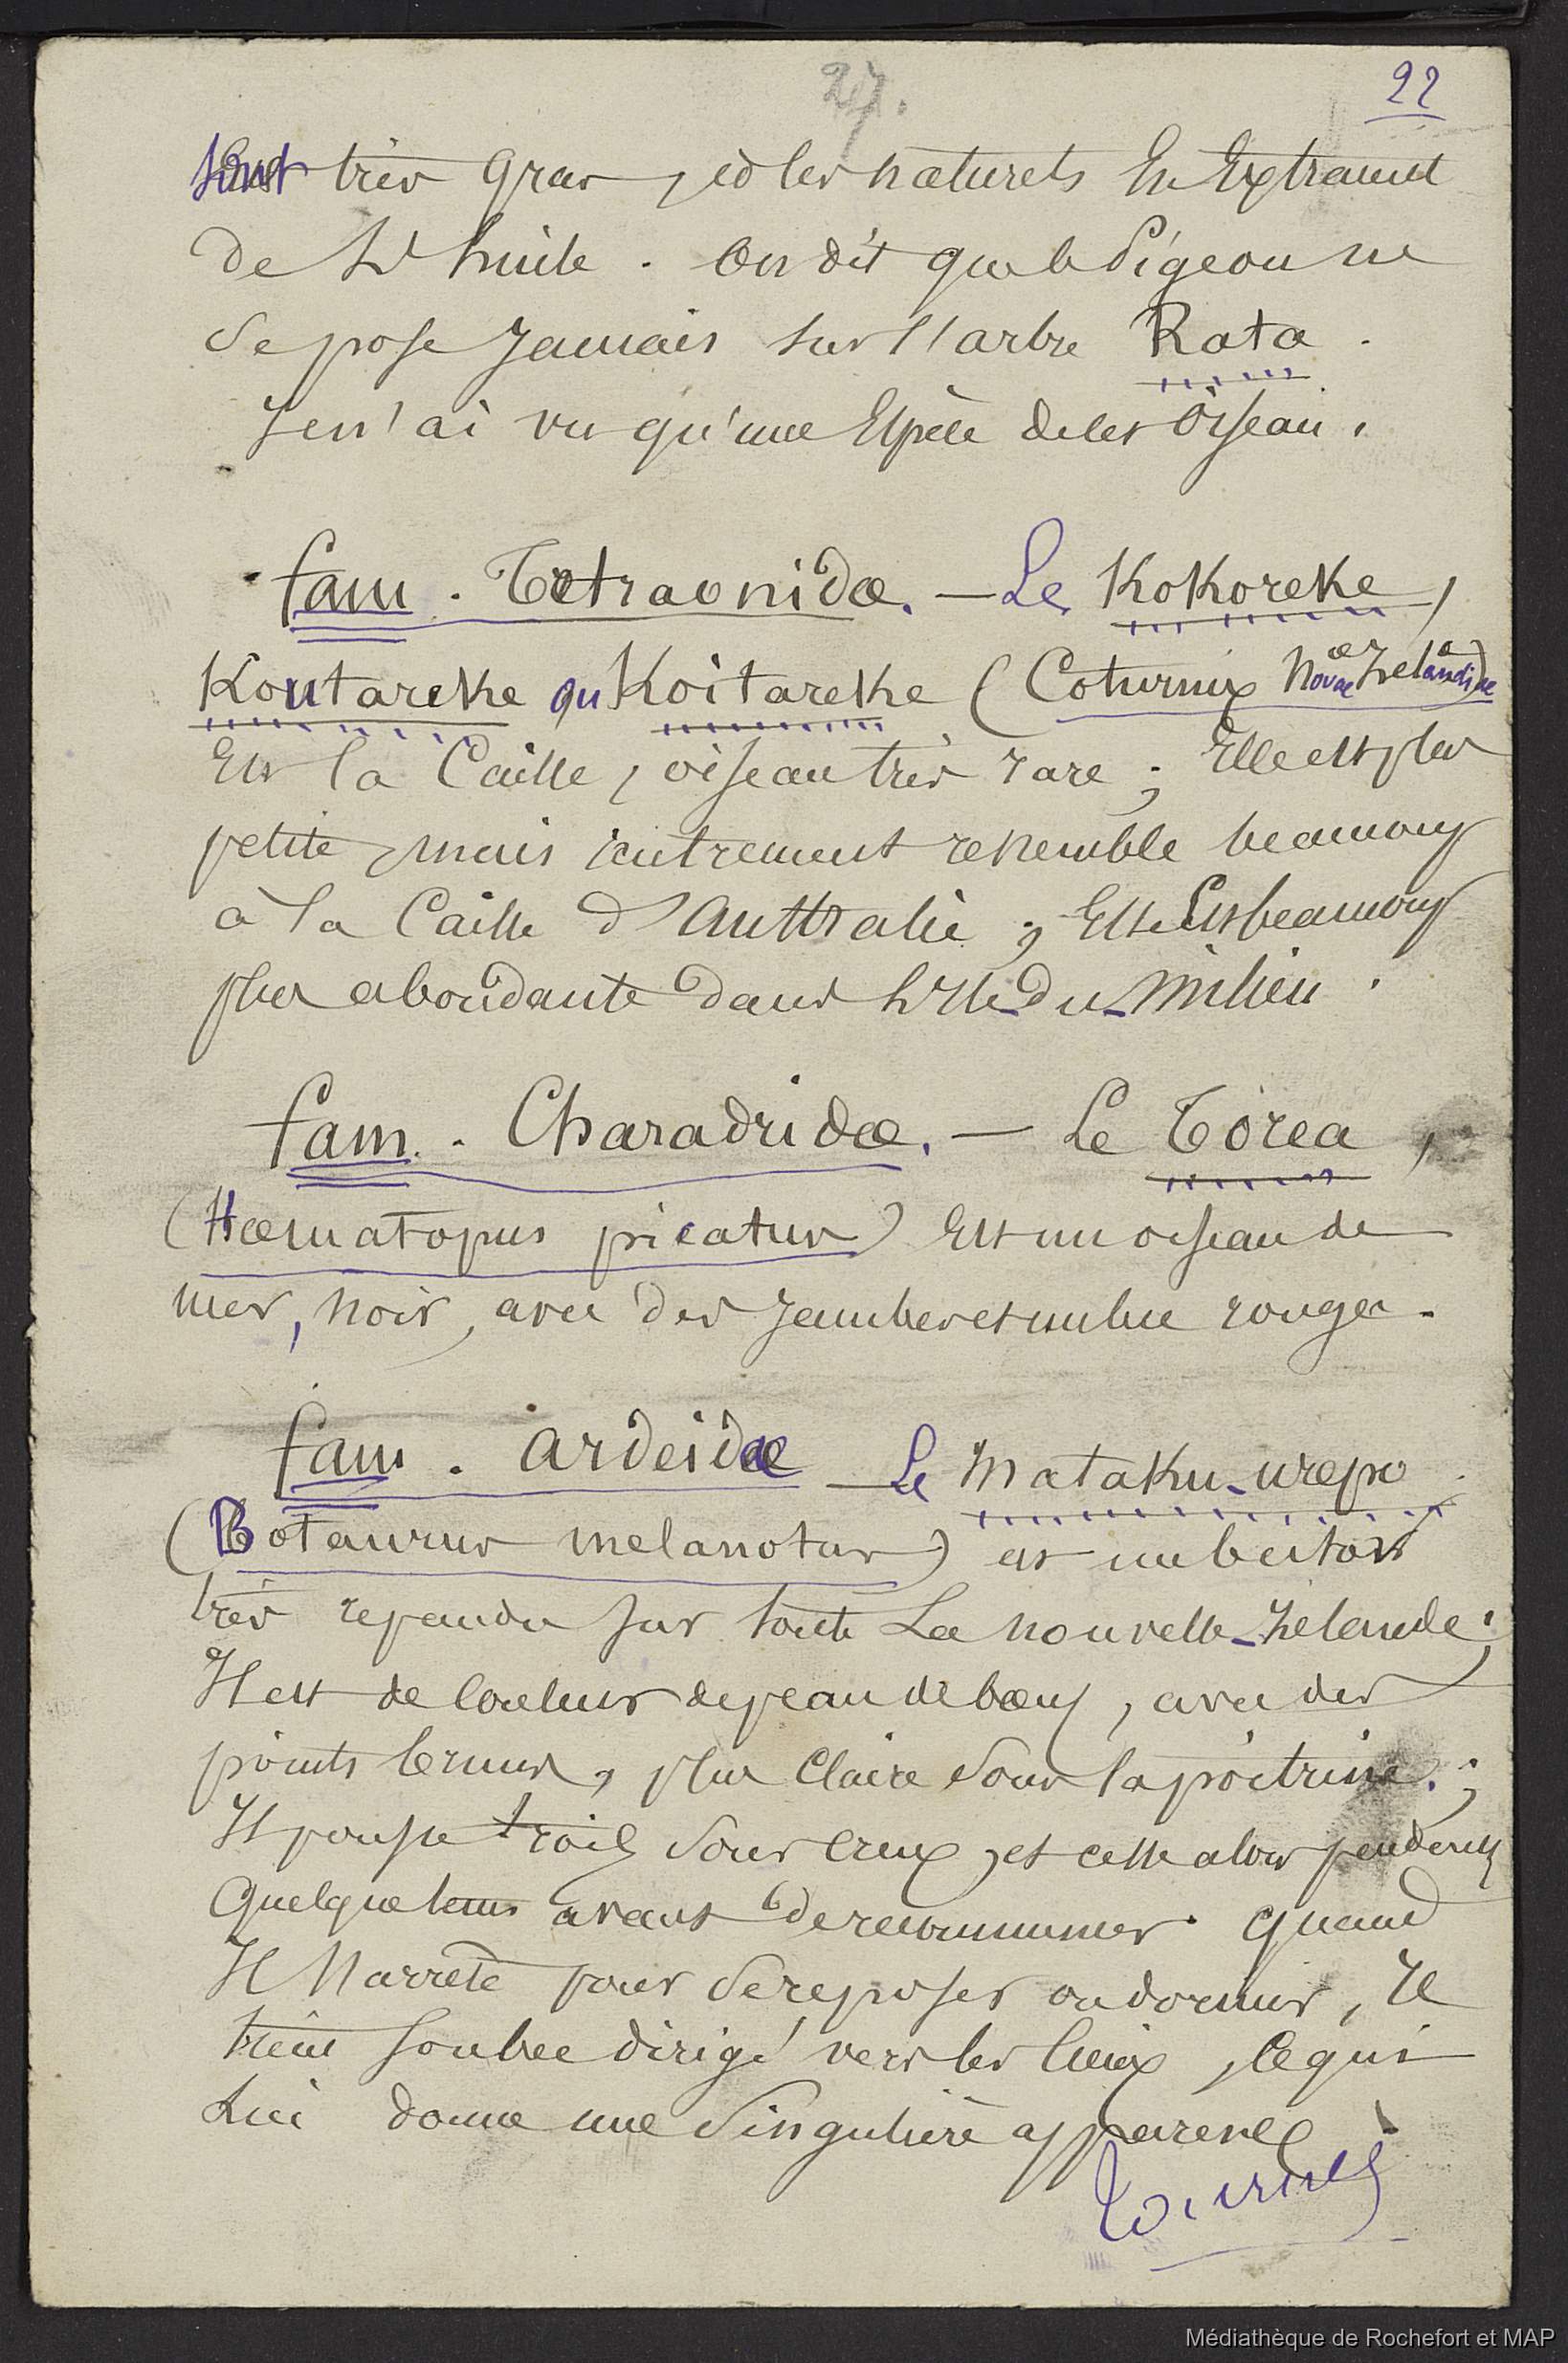 27.
22
sont très gras, et les naturels En Extraient
de L'huile. On dit que le Pigeon ne
se pose Jamais sur l'arbre Rata.
Je n'ai vu qu'une Espèce de ces Oiseau.
fam. Tetraonidæ. — Le Kokoreke,
Koutareke ou Koitareke (Coturnix Novæ Zelandiæ)
Est la Caille, oiseau très rare; Elle est plus
petite, mais autrement ressemble beaucoup
à la Caille d'Australie; Elle Est beaucoup
plus abondante dans L'Ile-du-Milieu.
fam. Charadridæ. — Le Torea,
(Hæmatopus picatus) Est un oiseau de
mer, noir, avec des Jambes et un bec rouges.
fam. Ardeidæ — Le Mataku-urepo
(Botaurus melanotus) est un butor
très répandu sur toute La Nouvelle-Zelande;
Il est de Couleur de peau de bœuf, avec des
points bruns, plus Claire sous la poitrine.;
Il pousse trois sons creux, et cesse alors pendant
Quelque tems avant de recommencer. Quand
Il s'arrête pour se reposer ou dormir, Il
tient son bec dirigé vers les Cieux, Ce qui
Lui donne une singulière apparence.
Tournez
Médiathèque de Rochefort et MAP